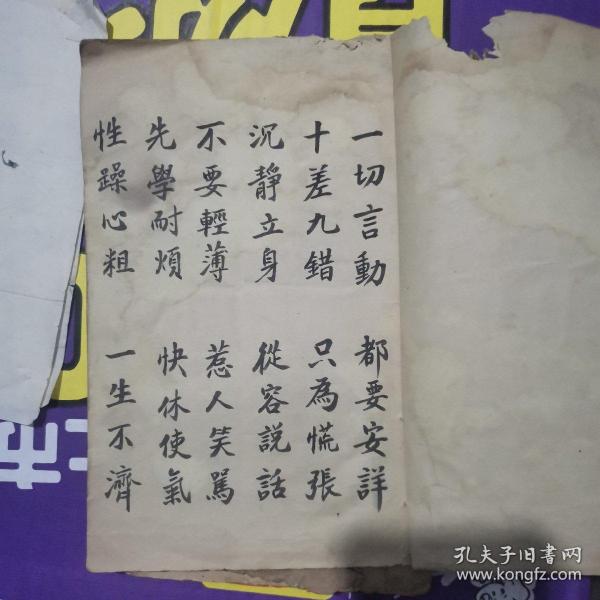 一切言動　都要安詳
十差九錯　只為慌張
沉靜立身　從容說話
不要輕薄　惹人笑罵
先學耐煩　快休使氣
性躁心粗　一生不濟
孔夫子旧书网
www.kongfz.com